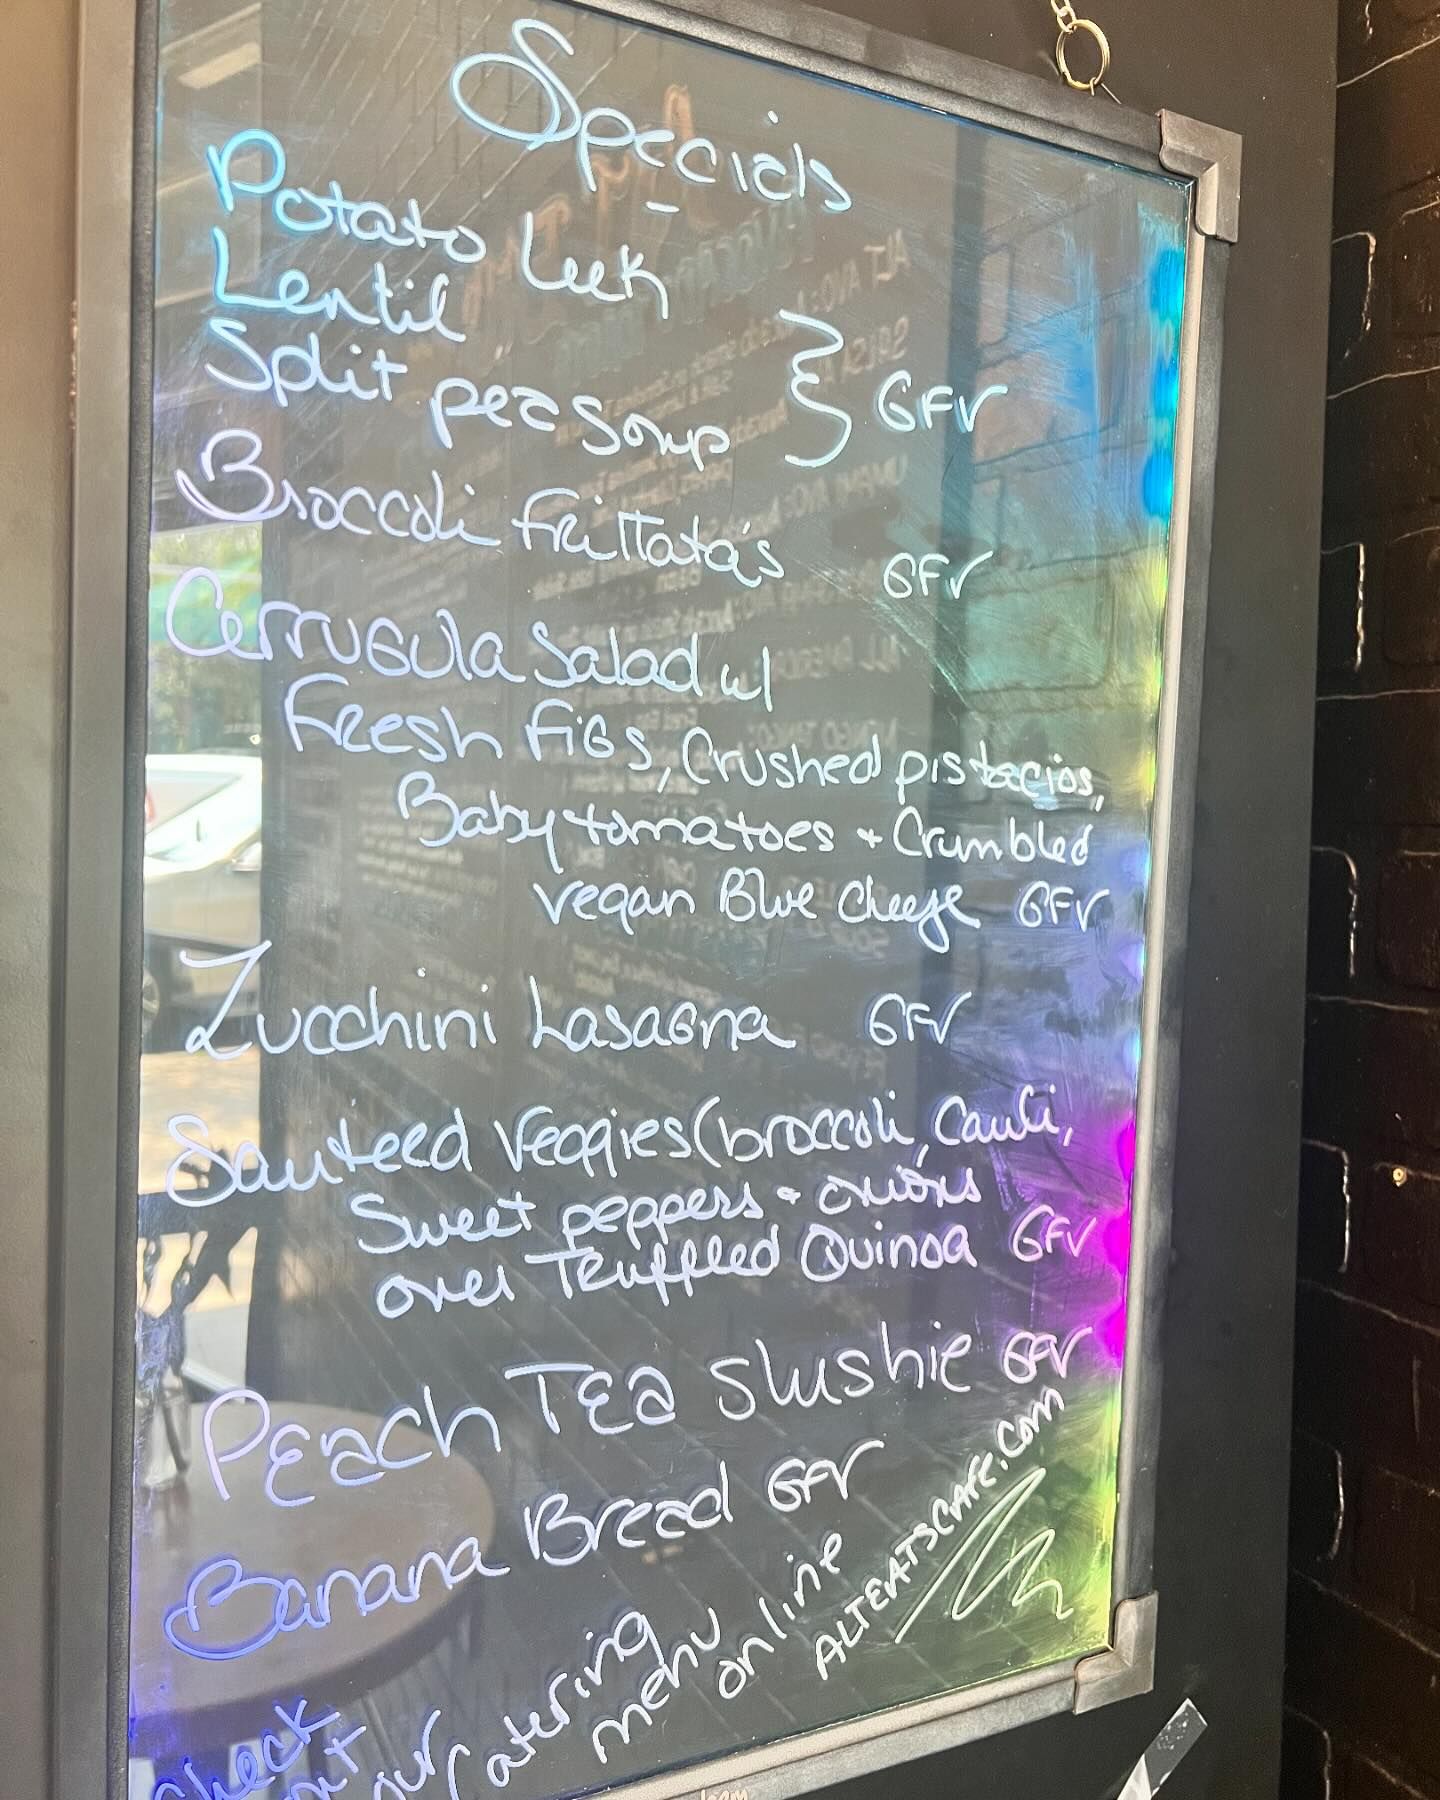 Specials
Potato Leek
Lentil
Split pea Soup } GFV
Broccoli Frittata's GFV
Cerrugula Salad w/
Fresh Figs, Crushed pistacios,
Baby tomatoes + Crumbled
vegan Blue cheese GFV
Zucchini Lasagna GFV
Sauteed Veggies (broccoli, Cauli,
Sweet peppers + onions
over Truffled Quinoa GFV
Peach TEa Slushie GFV
Banana Bread GFV
Check out our Catering menu online
ALTEATSCAFE.Com